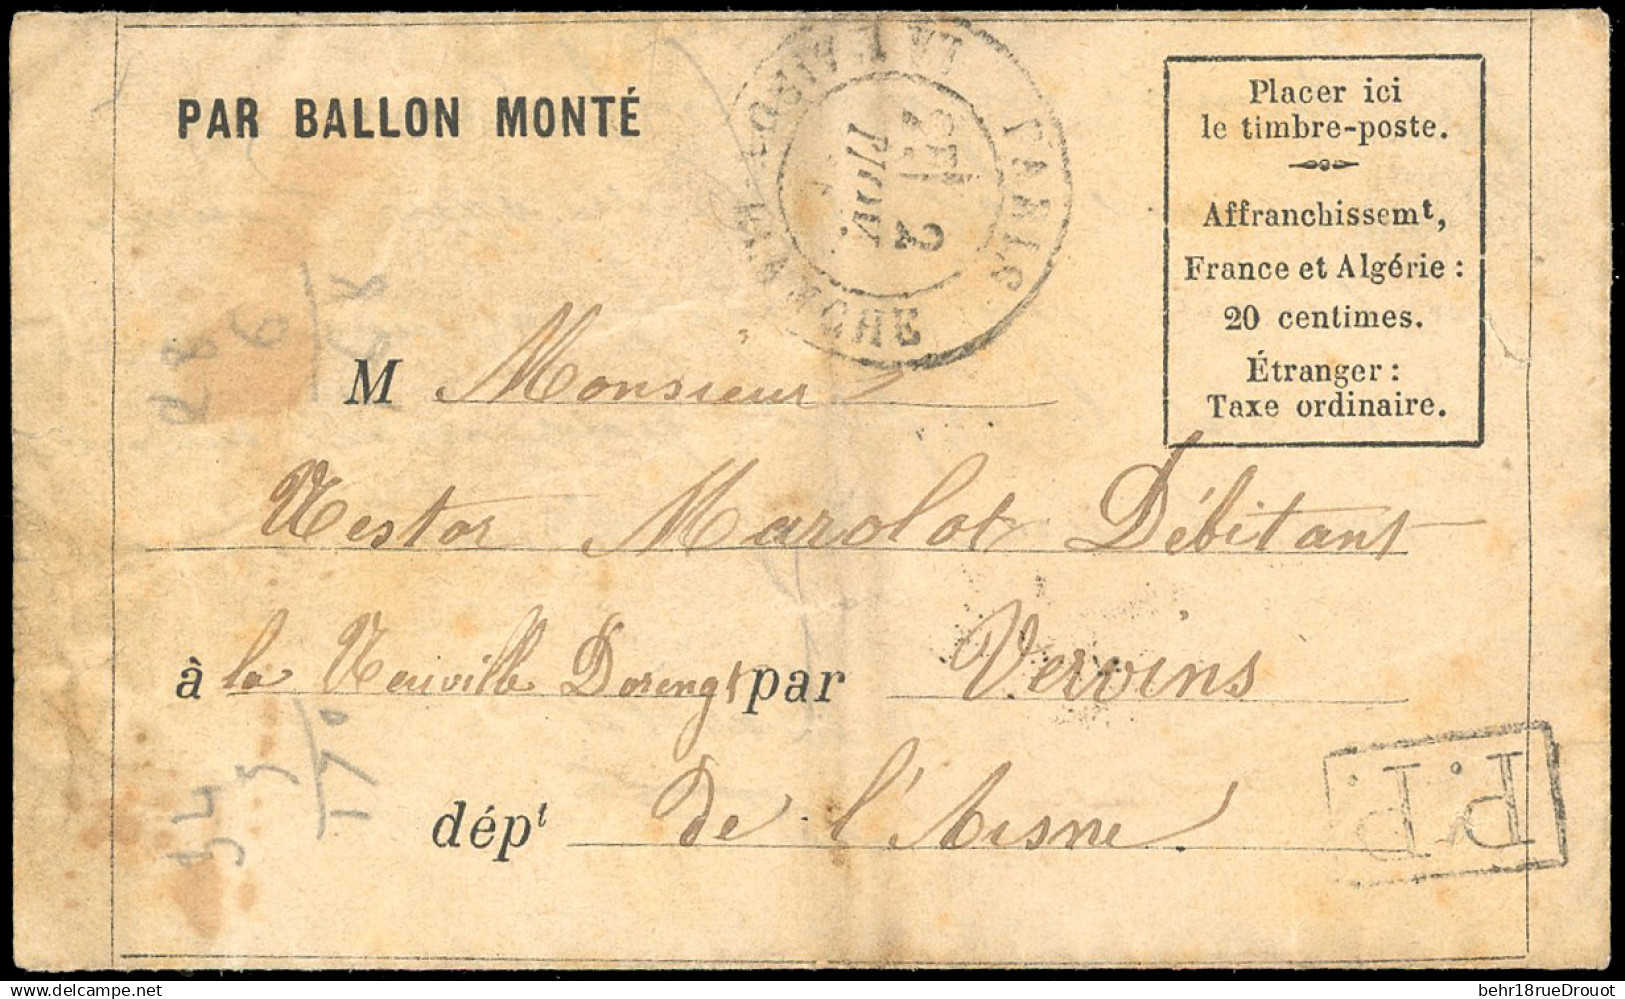 PAR BALLON MONTÉ
PARIS
2E
2
NOV.
Placer ici
le timbre-poste.
Affranchissemt,
France et Algérie :
20 centimes.
Étranger :
Taxe ordinaire.
28
6
168
M Monsieur
Nestor Marolot Débitant
à la Neuville Dorengt par Vervins
34
5
170
dépt de l'Aisne.
P.P.
delcampe.net
behr18rueDrouot